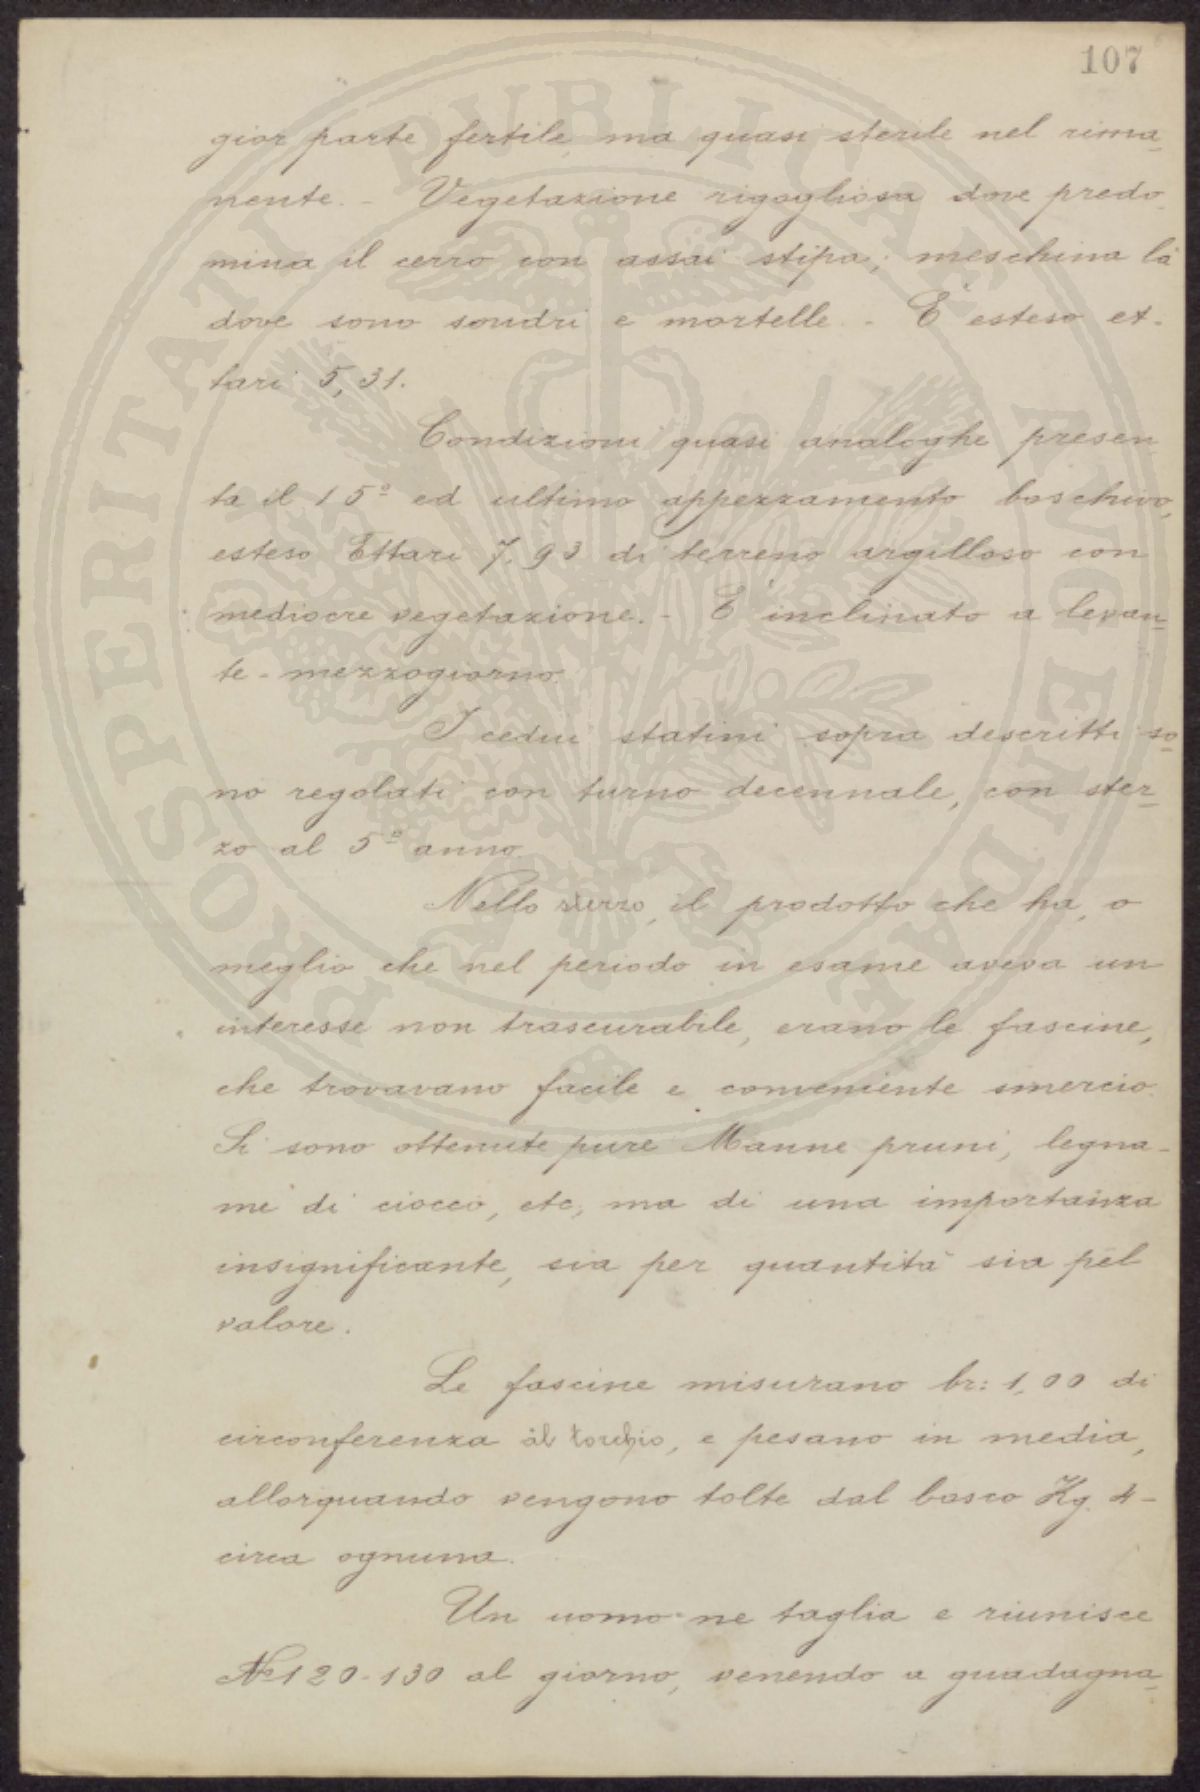 107
gior parte fertile, ma quasi sterile nel rima-
nente. - Vegetazione rigogliosa dove predo-
mina il cerro con assai stipa; meschina là
dove sono soudri e mortelle. - È esteso et-
tari 5,31.
Condizioni quasi analoghe presen-
ta il 15º ed ultimo appezzamento boschivo,
esteso Ettari 7.93 di terreno argilloso con
mediocre vegetazione. - È inclinato a levan-
te - mezzogiorno.
I cedui statini sopra descritti so-
no regolati con turno decennale, con ster-
zo al 5º anno.
Nello sterzo, il prodotto che ha, o
meglio che nel periodo in esame aveva un
interesse non trascurabile, erano le fascine,
che trovavano facile e conveniente smercio.
Si sono ottenute pure Manne pruni, legna-
me di ciocco, etc, ma di una importanza
insignificante, sia per quantità sia pel
valore.
Le fascine misurano br: 1,00 di
circonferenza al torchio, e pesano in media,
allorquando vengono tolte dal bosco Kg. 4-
circa ognuna.
Un uomo ne taglia e riunisce
Nº 120-130 al giorno, venendo a guadagna-
PROSPERITATI PVBLICAE AVGENDAE